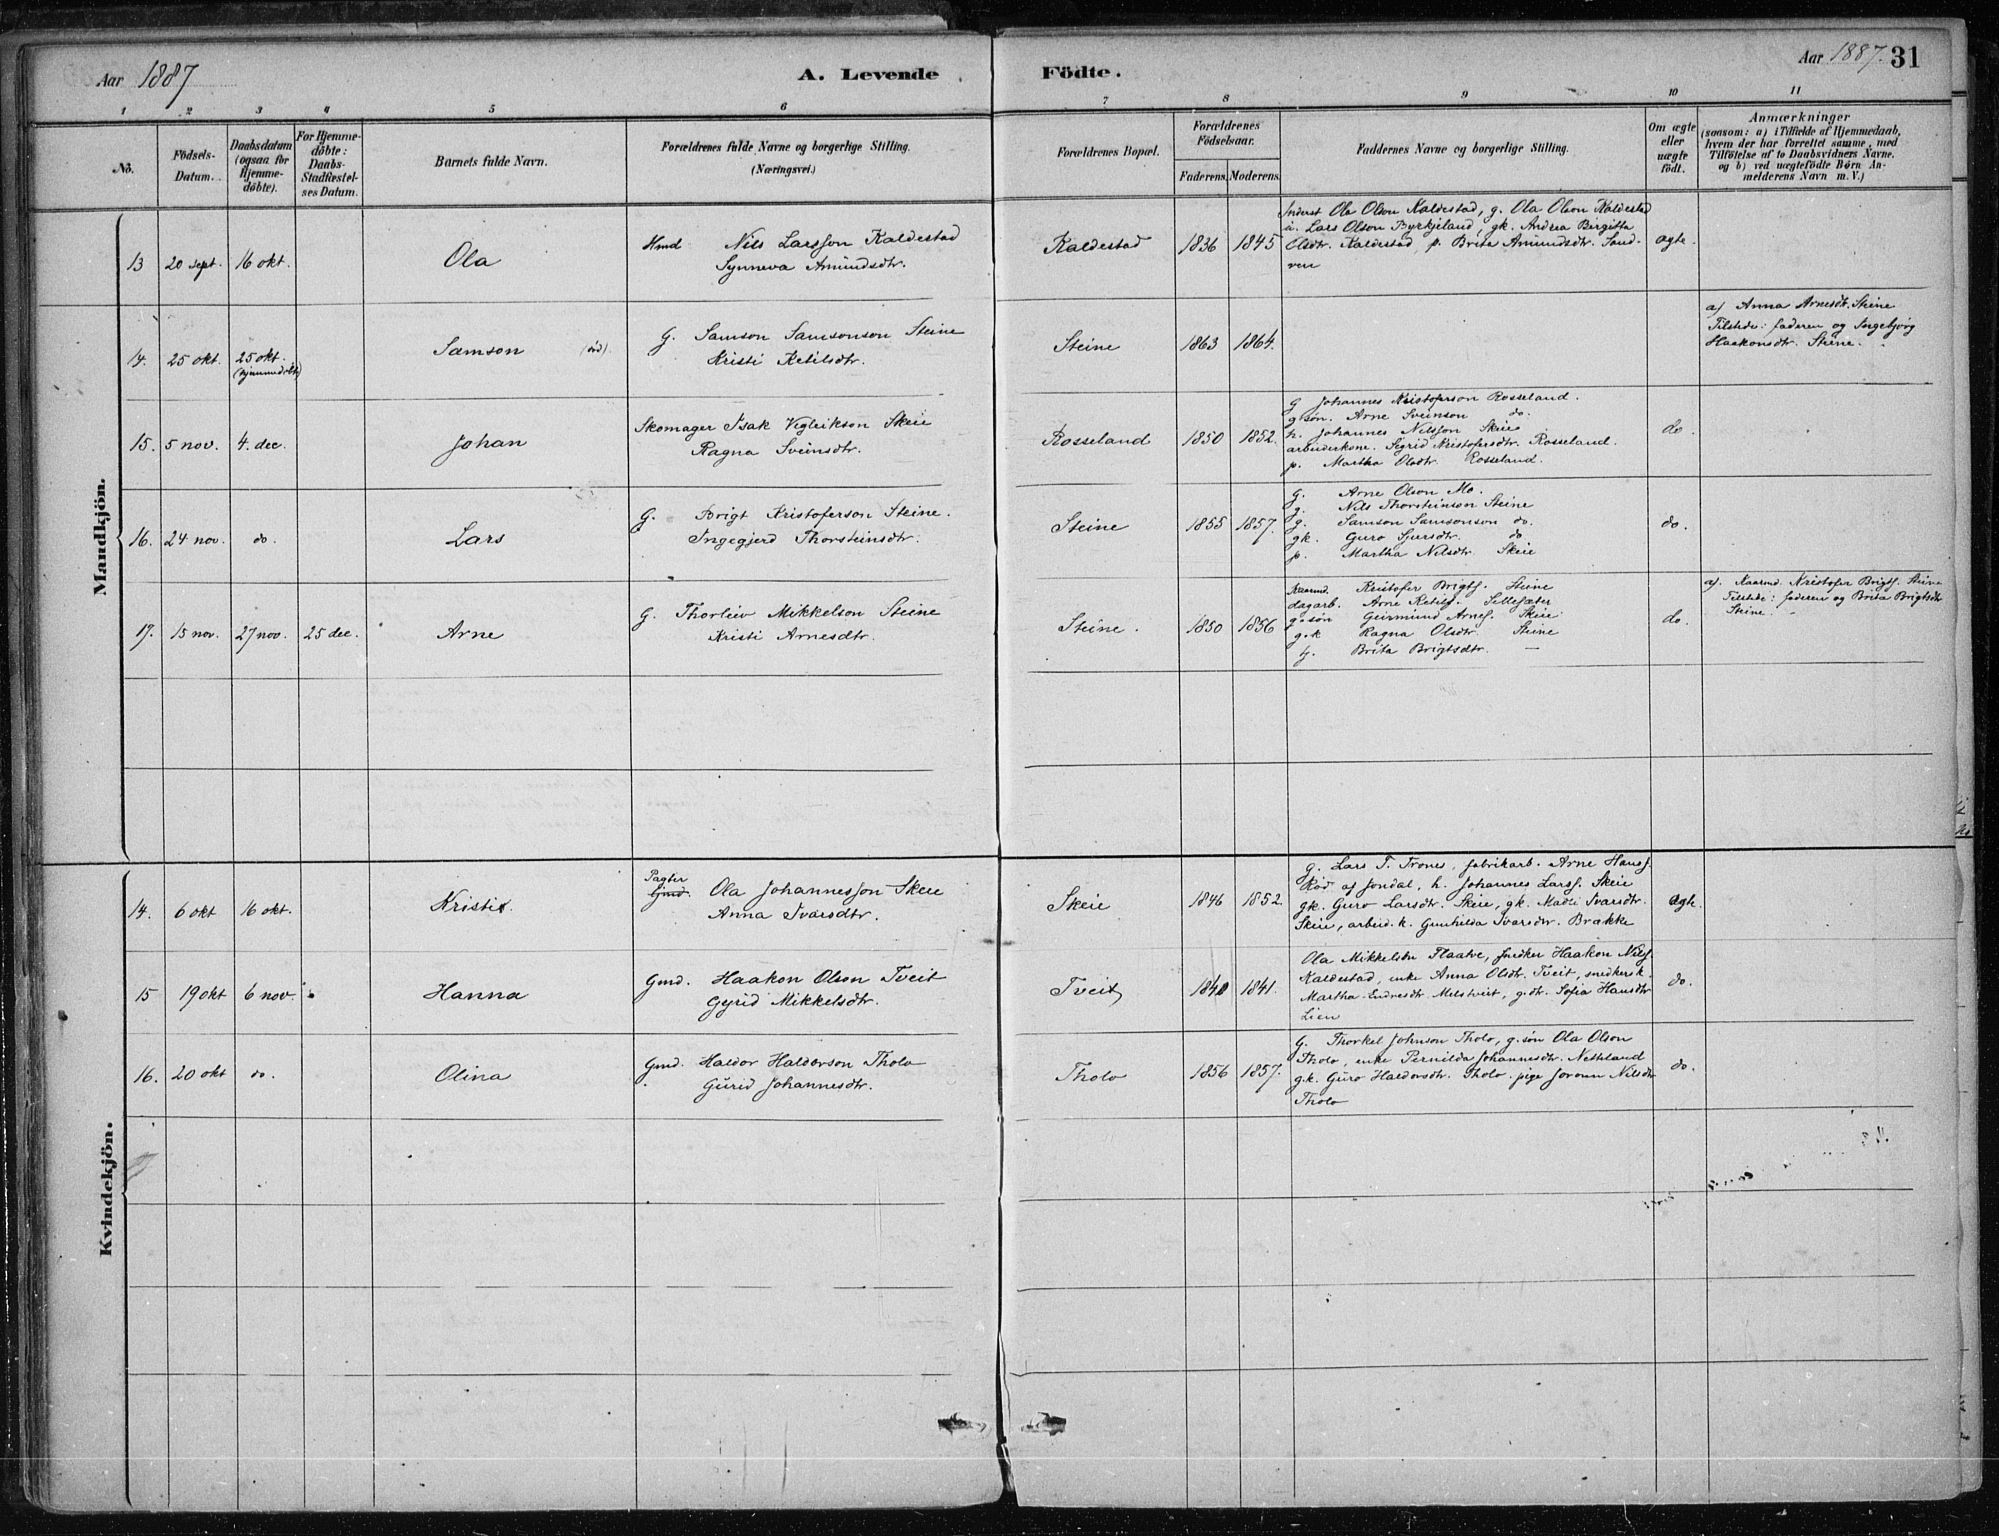 Aar 1887
A. Levende Födte.
Aar 1887. 31
1 2 3 4 5 6 7 8 9 10 11
No.
Födsels-Datum.
Daabsdatum (ogsaa for Hjemme-döbte).
For Hjemme-döbte: Daabs-Stadfestel-ses Datum.
Barnets fulde Navn.
Forældrenes fulde Navne og borgerlige Stilling.
(Næringsvei.)
Forældrenes Bopæl.
Forældrenes Födselsaar.
Faderens. Moderens.
Faddernes Navne og borgerlige Stilling.
Om ægte eller uægte födt.
Anmærkninger
(saasom: a) i Tilfælde af Hjemmedaab,
hvem der har forrettet samme, med
Tilföielse af to Daabsvidners Navne,
og b) ved uægtefödte Börn An-
melderens Navn m. V.)
Mandkjön.
13 20 sept. 16 okt. Ola
Hmd Nils Larsson Kaldestad
Synneva Amundsdtr.
Kaldestad 1836 1845
Inderst Ola Olson Kaldestad, g. Ola Olson Kaldestad
u. Lars Olson Byrkjeland, gk. Andrea Bergitta
Olsdtr. Kaldestad, p. Brita Amundsdtr. Sand-
ven
ægte.
14. 25 okt. 25 okt. (hjemmedöbt) Samson (död).
G. Samson Samsonson Steine
Kristi Ketilsdtr.
Steine 1863 1864.
a) Anna Arnesdtr. Steine
Tilstede: faderen og Ingebjörg
Haakonsdtr. Steine.
15. 5 nov. 4. dec. Johan
Skomager Isak Vigleikson Skeie
Ragna Sveinsdtr.
Rosseland 1850 1852.
G Johannes Kristoferson Rosseland.
g.søn. Arne Sveinson do.
h. Johannes Nilsson Skeie
arbeiderkone. Sigrid Kristofersdtr. Rosseland.
p. Martha Olsdtr. Rosseland.
do.
16. 24 nov. do. Lars
G. Brigt Kristoferson Steine.
Ingegjerd Thorsteinsdtr.
Steine 1855 1857.
G. Arne Olson Mo.
g. Nils Thorsteinson Steine
g. Samson Samsonson do.
gk. Guro Sjursdtr. do
p. Martha Nilsdtr. Skeie
do.
17. 15 nov. 27 nov. 25 dec. Arne
G. Thorleiv Mikkelson Steine
Kristi Arnesdtr.
Steine. 1850 1856
Kaarmd. Kristofer Brigts. Steine
dagarb. Arne Ketils. Sillesæter
g.søn Guttmund Arnes. Skeie
g.k Ragna Olsdtr. Steine
Brita Brigtsdtr. —
do.
a). Kaarmd. Kristofer Brigts. Steine
Tilstede: faderen og Brita Brigtsdtr
Steine.
Kvindekjön.
14. 6 okt 16 okt. Kristi.
Pagter
Gmd. Ola Johannesson Skeie
Anna Ivarsdtr.
Skeie 1846 1852.
G. Lars T. Trones, fabrikarb. Arne Hans.
Röd af Jondal, h. Johannes Larss. Skeie
gk. Guro Larsdtr. Skeie, gk. Madli Ivarsdtr.
Skeie, arbeid. k. Gunhilda Ivarsdtr. Brække
ægte.
15 19 okt 6 nov. Hanna
Gmd. Haakon Olson Tveit
Gyrid Mikkelsdtr.
Tveit 1840 1841.
Ola Mikkelson Flaatve, snedker Haakon Nils.
Kaldestad, enke Anna Olsdtr. Tveit, snedkersk.
Martha Endresdtr. Melstveit, g.dtr. Sofia Hansdtr
Lien
do.
16. 20 okt do. Olina
Gmd. Haldor Haldorson Tholo
Gurid Johannesdtr.
Tholo 1856 1857.
G. Thorkel Johnson Tholo, g.søn Ola Olson
Tholo, enke Pernilda Johannesdtr. Netteland
g.k. Guro Haldorsdtr. Tholo. pige Jorunn Nilsdtr
Tholo
do.